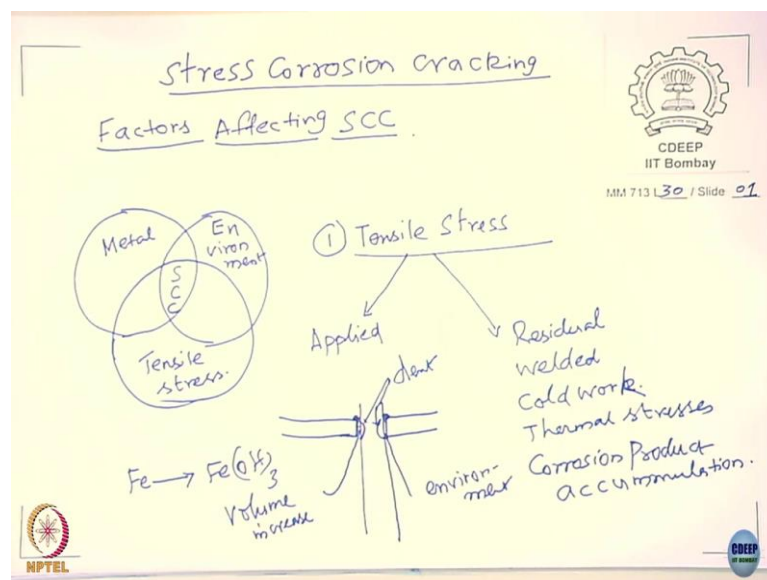 Stress Corrosion Cracking
Factors Affecting SCC.
CDEEP
IIT Bombay
MM 713 L30 / Slide 01
Metal
En
viron
ment
S
C
C
Tensile
stress.
① Tensile Stress
Applied
Residual
welded
Cold work.
Thermal stresses
Corrosion Product
accummulation.
dent
Fe → Fe(OH)3
volume
increase
environ-
ment
NPTEL
CDEEP
IIT BOMBAY